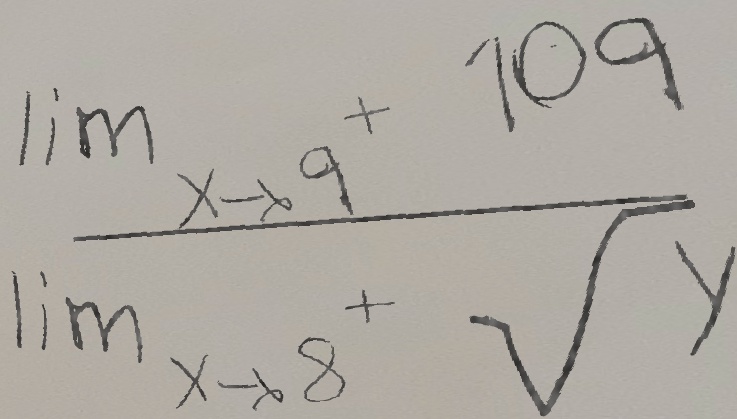 lim x→9⁺ 109
lim x→8⁺ √y